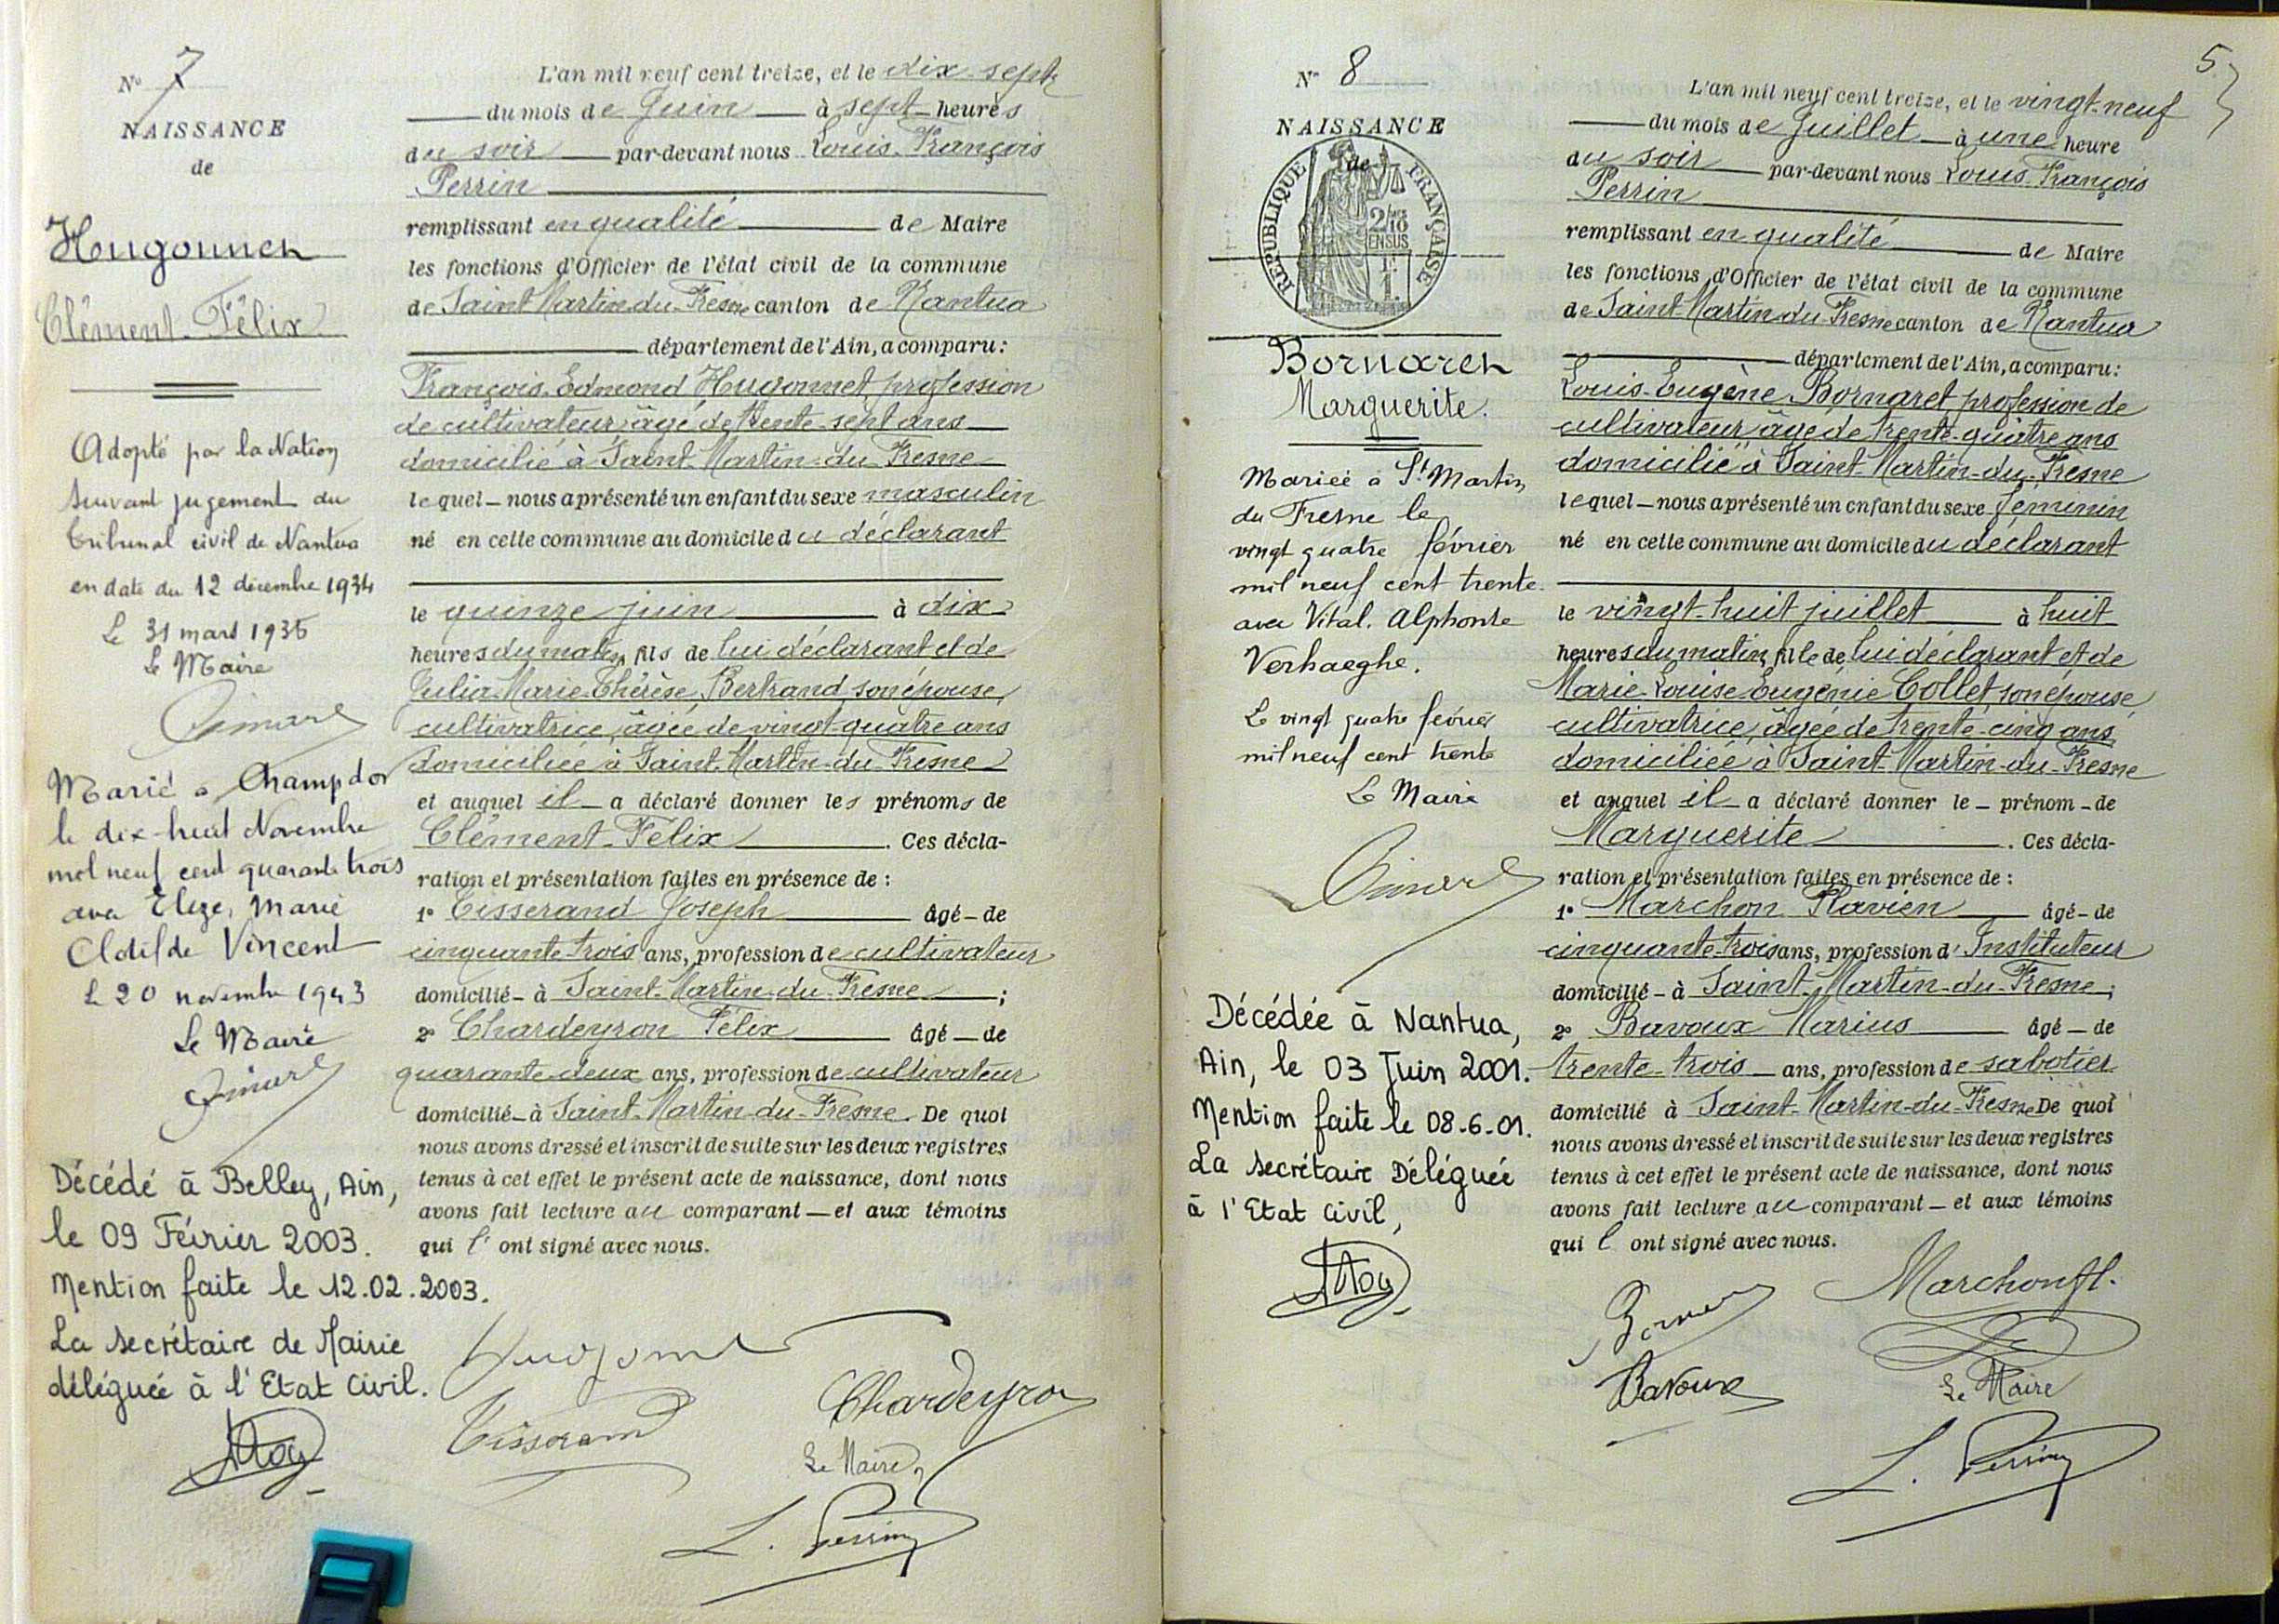 N° 7
NAISSANCE
de
Hugonnet
Clément Félix
Adopté par la Nation
suivant jugement du
Tribunal civil de Nantua
en date du 12 décembre 1934
Le 31 mars 1935
Le Maire
Marié à Champdor
le dix-huit Novembre
mil neuf cent quarante trois
avec Elize, Marie
Clotilde Vincent
Le 20 novembre 1943
Le Maire
Décédé à Belley, Ain,
le 09 Février 2003.
Mention faite le 12.02.2003.
La secrétaire de Mairie
déléguée à l'Etat Civil.
L'an mil neuf cent treize, et le dix-sept
du mois de Juin à sept heures
du soir par-devant nous Louis-François
Perrin
remplissant en qualité de Maire
les fonctions d'Officier de l'état civil de la commune
de Saint-Martin-du-Fresne canton de Nantua
département de l'Ain, a comparu :
François-Edmond Hugonnet, profession
de cultivateur, âgé de trente-sept ans
domicilié à Saint-Martin-du-Fresne
lequel nous a présenté un enfant du sexe masculin
né en cette commune au domicile du déclarant
le quinze juin à dix
heures du matin, fils de lui déclarant et de
Julia-Marie-Thérèse Bertrand, son épouse,
cultivatrice, âgée de vingt-quatre ans
domiciliée à Saint-Martin-du-Fresne
et auquel il a déclaré donner les prénoms de
Clément-Félix. Ces décla-
ration et présentation faites en présence de :
1° Tisserand Joseph âgé de
cinquante-trois ans, profession de cultivateur
domicilié à Saint-Martin-du-Fresne ;
2° Chardeyron Félix âgé de
quarante-deux ans, profession de cultivateur
domicilié à Saint-Martin-du-Fresne. De quoi
nous avons dressé et inscrit de suite sur les deux registres
tenus à cet effet le présent acte de naissance, dont nous
avons fait lecture au comparant et aux témoins
qui l'ont signé avec nous.
Hugonnet
Tisserand
Chardeyron
Le Maire,
L. Perrin
5
N° 8
NAISSANCE
de
RÉPUBLIQUE FRANÇAISE
2/10 EN SUS
1F.
Bornaret
Marguerite.
Mariée à St Martin
du Fresne le
vingt quatre février
mil neuf cent trente
avec Vital. Alphonse
Verhaeghe.
Le vingt quatre février
mil neuf cent trente
Le Maire
Décédée à Nantua,
Ain, le 03 Juin 2001.
Mention faite le 08-6-01.
La secrétaire Déléguée
à l'Etat Civil,
L'an mil neuf cent treize, et le vingt-neuf
du mois de Juillet à une heure
du soir par-devant nous Louis-François
Perrin
remplissant en qualité de Maire
les fonctions d'Officier de l'état civil de la commune
de Saint-Martin-du-Fresne canton de Nantua
département de l'Ain, a comparu :
Louis-Eugène Bornaret, profession de
cultivateur, âgé de trente-quatre ans
domicilié à Saint-Martin-du-Fresne
lequel nous a présenté un enfant du sexe féminin
né en cette commune au domicile du déclarant
le vingt-huit juillet à huit
heures du matin, fille de lui déclarant et de
Marie-Louise-Eugénie Collet, son épouse,
cultivatrice, âgée de trente-cinq ans,
domiciliée à Saint-Martin-du-Fresne
et auquel il a déclaré donner le prénom de
Marguerite. Ces décla-
ration et présentation faites en présence de :
1° Marchon Flavien âgé de
cinquante-trois ans, profession d'Instituteur
domicilié à Saint-Martin-du-Fresne ;
2° Bavoux Marius âgé de
trente-trois ans, profession de sabotier
domicilié à Saint-Martin-du-Fresne De quoi
nous avons dressé et inscrit de suite sur les deux registres
tenus à cet effet le présent acte de naissance, dont nous
avons fait lecture au comparant et aux témoins
qui l'ont signé avec nous.
Marchon fl.
Bavoux
Le Maire
L. Perrin